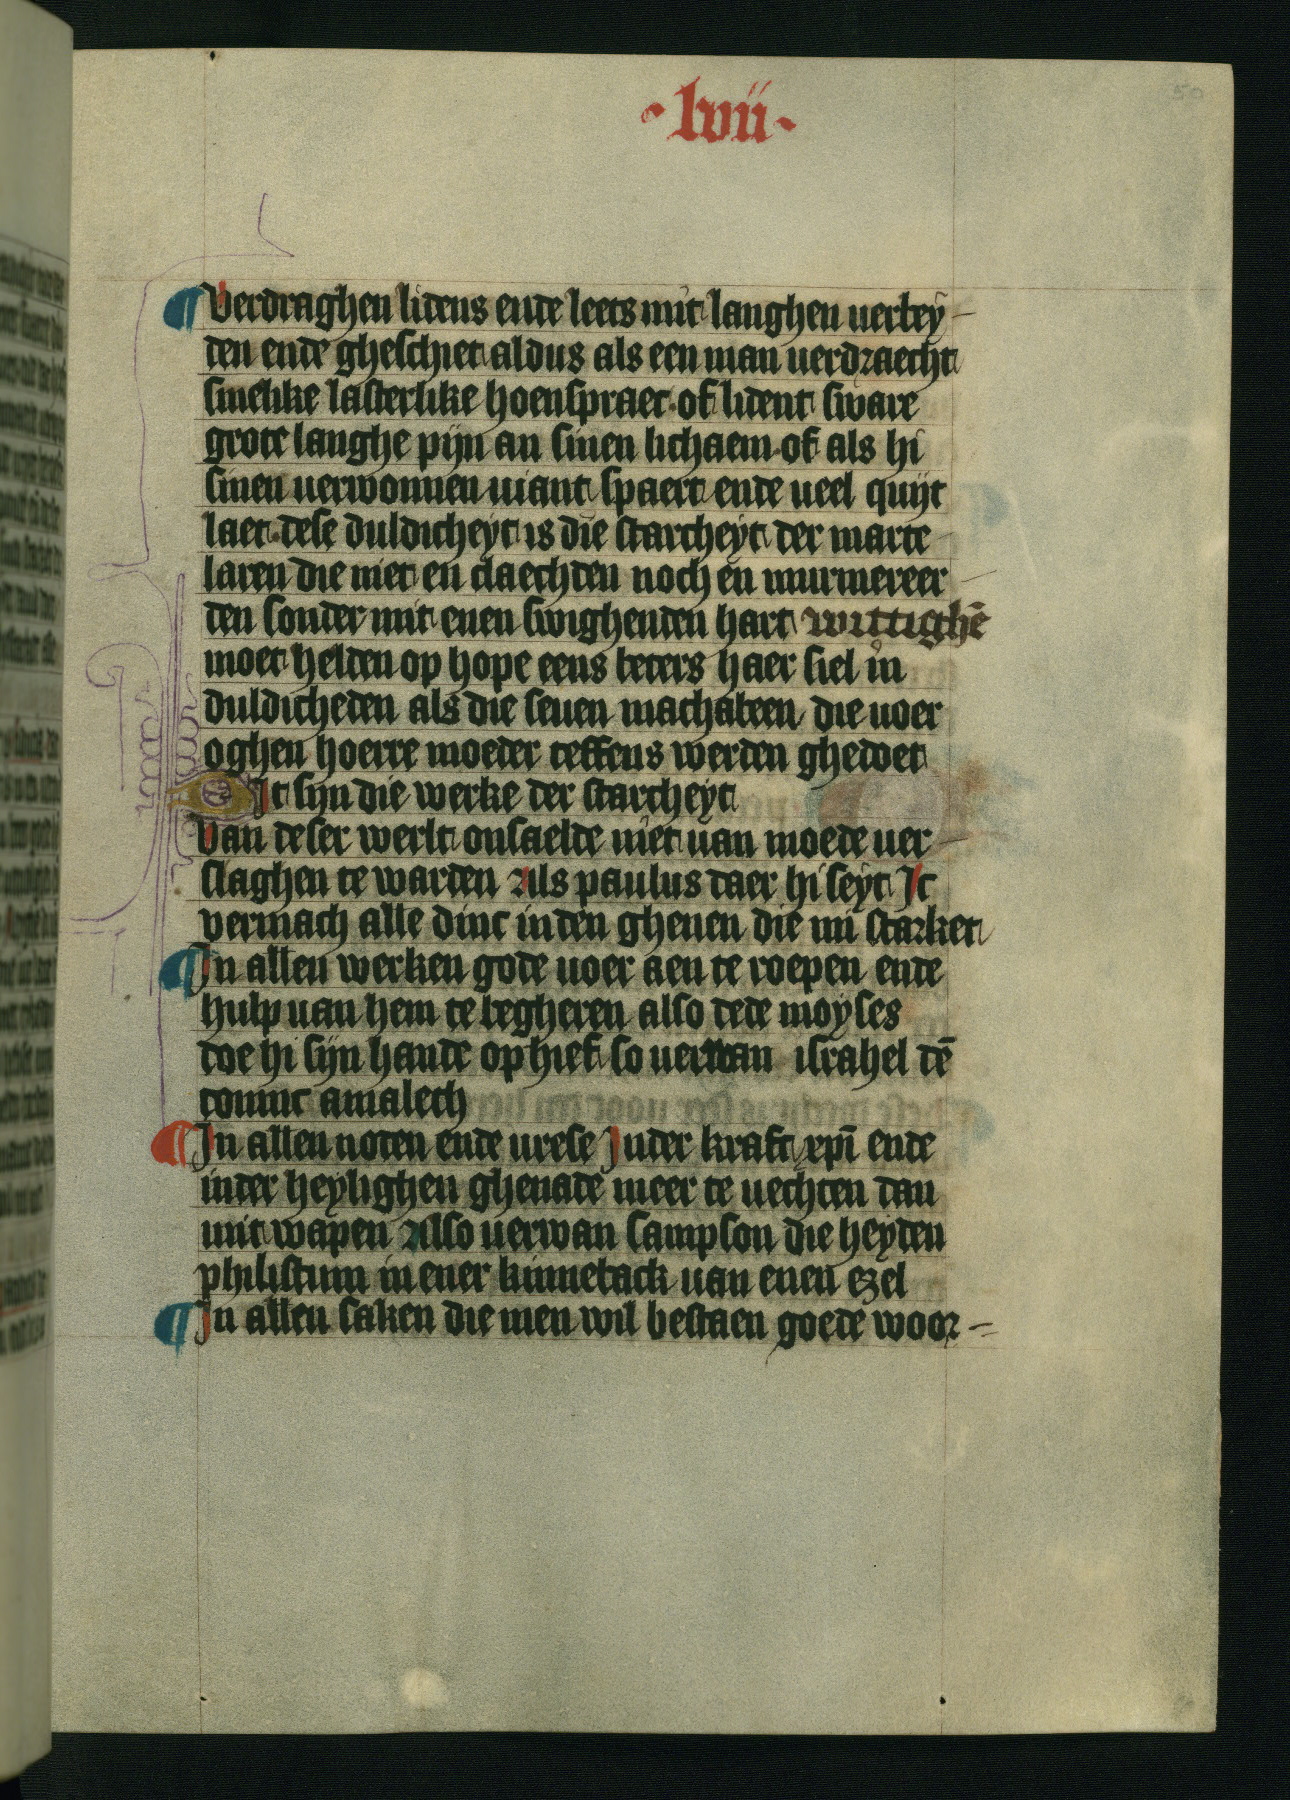 ·lvii·
50
¶ Verdraghen lidens ende leets mit langhen verbey-
den ende gheschiet aldus als een man verdraecht
smelike lasterlike hoenspraec· of lident sware
grote langhe pijn an sinen lichaem· of als hi
sinen verwonnen viant spaert ende veel quijt
laet· dese duldicheyt is die starcheyt der marte-
laren die niet en claechden noch en murmereer-
den sonder mit enen swighenden hart wittighē
moet helden op hope eens beters haer siel in
duldicheden als die seven machabeen die voer
oghen hoerre moeder teffens werden ghedoet
Dit sijn die werke der starcheyt
Van deser werlt onsaelde niet van moede ver-
slaghen te warden Als paulus daer hi seyt Ic
vermach alle dinc in den ghenen die mi starket
¶ In allen werken gode voer aen te roepen ende
hulp van hem te begheren also dede moyses
doe hi sijn hande op hief so verwan israhel dē
coninc amalech
¶ In allen noten ende vrese In der kraft xpī ende
in der heylighen ghenade meer te vechten dan
mit wapen Also verwan sampson die heyden
philistum in ener kinneback van enen ezel
¶ In allen saken die men wil bestaen goede woor-